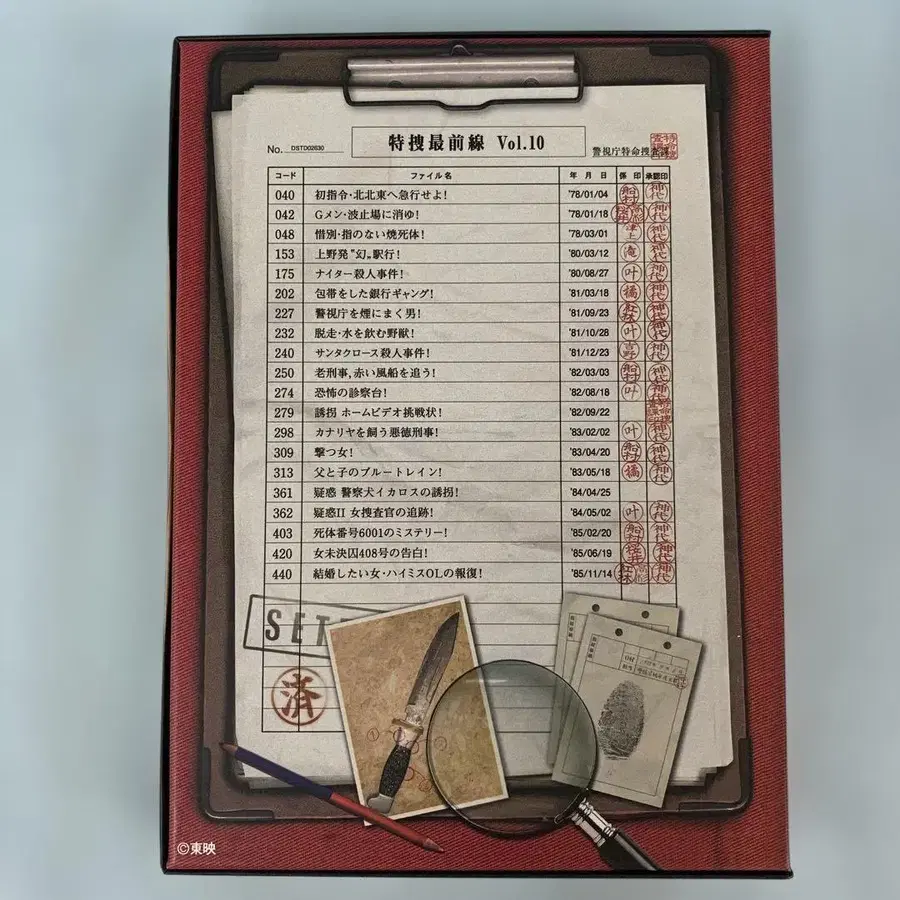 特捜最前線 Vol.10
No. DSTD02630
警視庁特命捜査課
コード ファイル名 年 月 日 係 印 承認印
040 初指令・北北東へ急行せよ! '78/01/04 船村 神代
042 Gメン・波止場に消ゆ! '78/01/18 神代
048 惜別・指のない焼死体! '78/03/01 津上 神代
153 上野発〝幻〟駅行! '80/03/12 滝 神代
175 ナイター殺人事件! '80/08/27 叶 神代
202 包帯をした銀行ギャング! '81/03/18 橘 神代
227 警視庁を煙にまく男! '81/09/23 紅林 神代
232 脱走・水を飲む野獣! '81/10/28 叶 神代
240 サンタクロース殺人事件! '81/12/23 吉野 神代
250 老刑事,赤い風船を追う! '82/03/03 船村 神代
274 恐怖の診察台! '82/08/18 叶 神代
279 誘拐 ホームビデオ挑戦状! '82/09/22
298 カナリヤを飼う悪徳刑事! '83/02/02 叶 神代
309 撃つ女! '83/04/20 船村 神代
313 父と子のブルートレイン! '83/05/18 橘 神代
361 疑惑 警察犬イカロスの誘拐! '84/04/25
362 疑惑II 女捜査官の追跡! '84/05/02 叶 神代
403 死体番号6001のミステリー! '85/02/20 船村 神代
420 女未決囚408号の告白! '85/06/19 桜井 神代
440 結婚したい女・ハイミスOLの報復! '85/11/14 紅林 神代
済
©東映